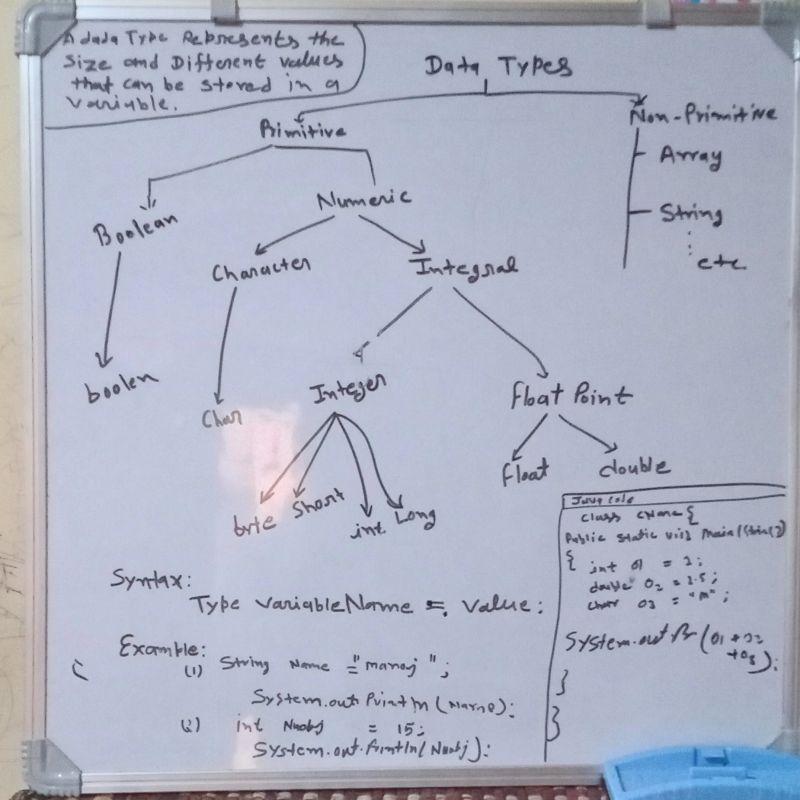 A data Type Represents the
Size and Different values
that can be stored in a
variable.
Data Types
Primitive
Non-Primitive
Array
String
etc
Boolean
Numeric
Character
Integral
boolen
Char
Integer
Float Point
byte
Short
int
Long
float
double
Syntax:
Type variableName = value;
Example:
(1) String Name = "manoj";
System.out.Println(Name);
(2) int Nuobj = 15;
System.out.Println(Nuobj);
Java code
Class CName {
Public static void main(
{ int o1 = 2;
double o2 = 2.5;
char o3 = "m";
System.out.Pr(o1+o2
+o3);
}
}